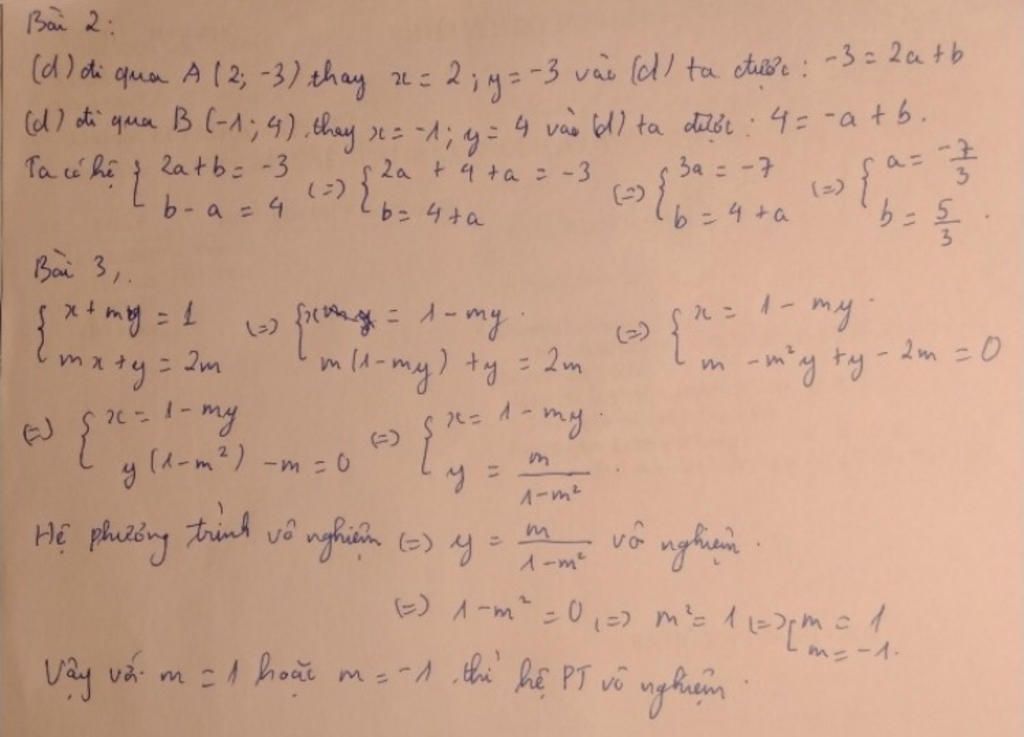 Bài 2:
(d) đi qua A (2; -3) thay x = 2; y = -3 vào (d) ta được: -3 = 2a + b
(d) đi qua B (-1; 4). thay x = -1; y = 4 vào (d) ta được: 4 = -a + b.
Ta có hệ { 2a + b = -3 ; b - a = 4 (=) { 2a + 4 + a = -3 ; b = 4 + a (=) { 3a = -7 ; b = 4 + a (=) { a = -7/3 ; b = 5/3 .
Bài 3,.
{ x + my = 1 ; mx + y = 2m (=) { x = 1 - my . ; m(1 - my) + y = 2m (=) { x = 1 - my . ; m - m²y + y - 2m = 0
(=) { x = 1 - my ; y(1 - m²) - m = 0 (=) { x = 1 - my . ; y = m/(1 - m²) .
Hệ phương trình vô nghiệm (=) y = m/(1 - m²) vô nghiệm .
(=) 1 - m² = 0 (=) m² = 1 (=) [ m = 1 ; m = -1.
Vậy với m = 1 hoặc m = -1 . thì hệ PT vô nghiệm .